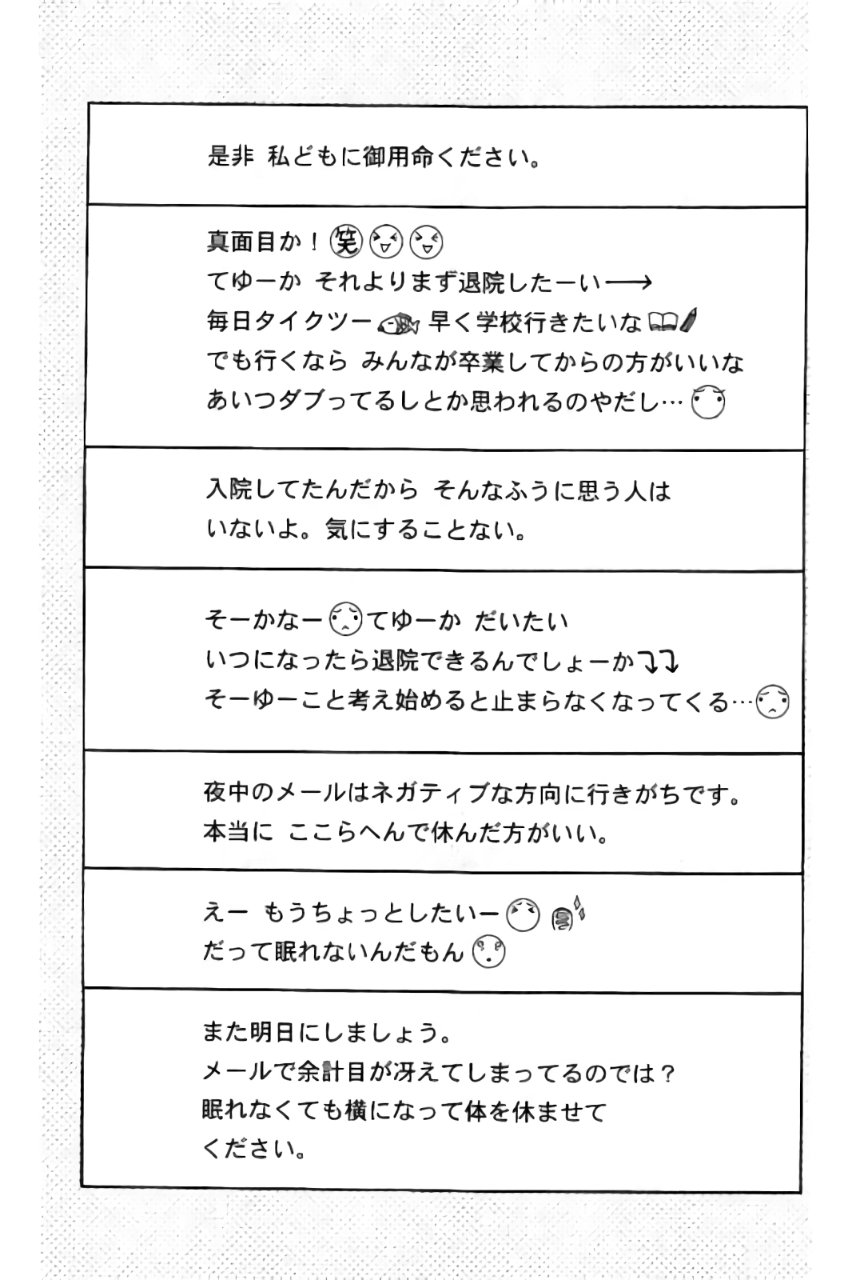 是非 私どもに御用命ください。
真面目か！笑
てゆーか それよりまず退院したーい→
毎日タイクツー 早く学校行きたいな
でも行くなら みんなが卒業してからの方がいいな
あいつダブってるしとか思われるのやだし…
入院してたんだから そんなふうに思う人は
いないよ。気にすることない。
そーかなー てゆーか だいたい
いつになったら退院できるんでしょーか⤵⤵
そーゆーこと考え始めると止まらなくなってくる…
夜中のメールはネガティブな方向に行きがちです。
本当に ここらへんで休んだ方がいい。
えー もうちょっとしたいー
だって眠れないんだもん
また明日にしましょう。
メールで余計目が冴えてしまってるのでは？
眠れなくても横になって体を休ませて
ください。